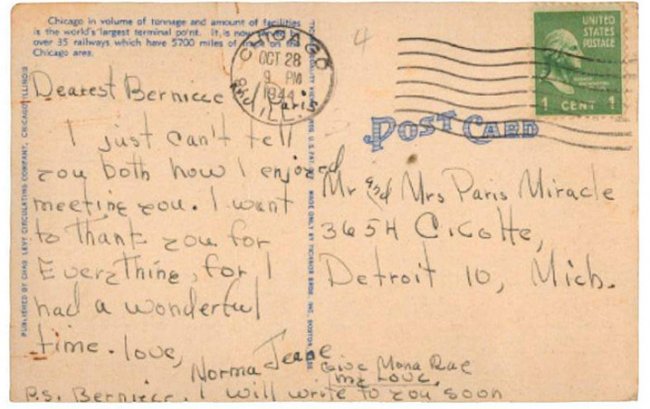 Chicago in volume of tonnage and amount of facilities
is the world's largest terminal point. It is now served by
over 35 railways which have 5700 miles of track in the
Chicago area.
CHICAGO
OCT 28
9 PM
1944
ILL.
4
UNITED
STATES
POSTAGE
1 CENT 1
POST CARD
Dearest Bernice & Paris
I just can't tell
you both how I enjoyed
meeting you. I want
to thank you for
Everything, for I
had a wonderful
time. love,
Norma Jeane
P.S. Bernice. I will write to you soon
Give Mona Rae
my love.
Mr and Mrs Paris Miracle
3654 Cicotte,
Detroit 10, Mich.
PUBLISHED BY CHAS. LEVY CIRCULATING COMPANY, CHICAGO, ILLINOIS
MADE ONLY BY TICHNOR BROS., INC., BOSTON, MASS.